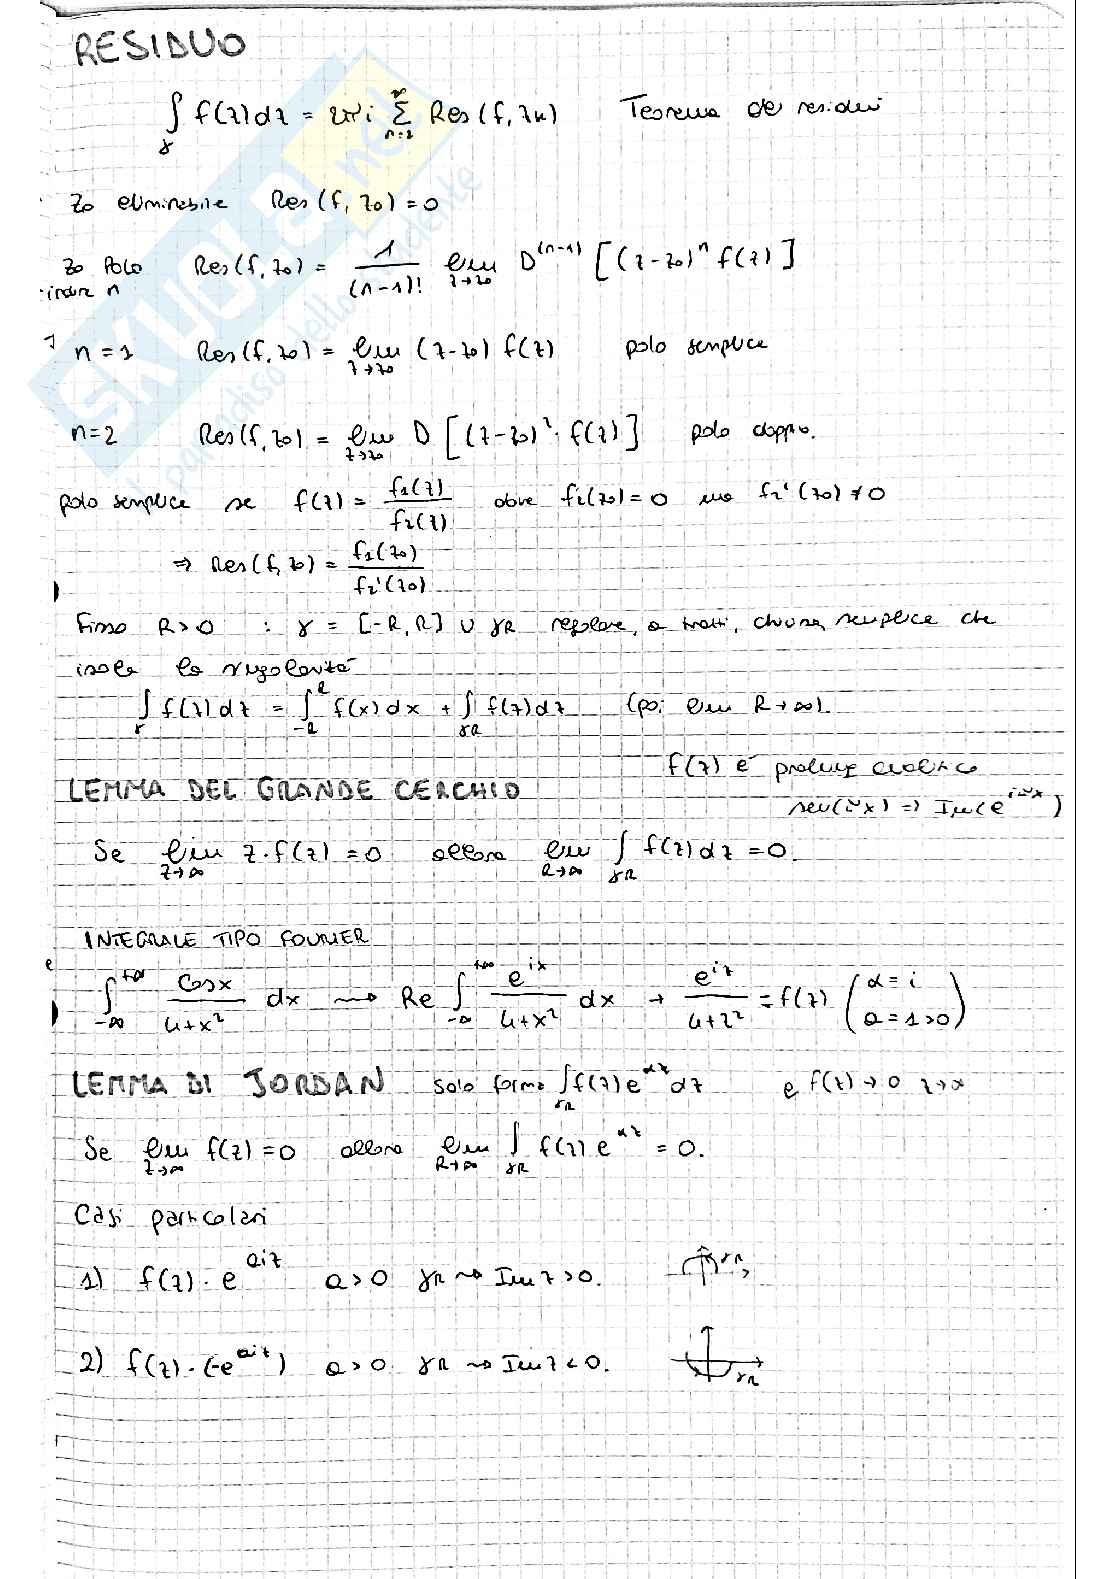 RESIDUO
∫γ f(z)dz = 2πi Σ Res(f, zk) Teorema dei residui
z0 eliminabile Res(f, z0) = 0
z0 Polo ordine n Res(f, z0) = 1/(n-1)! lim z→z0 D^(n-1) [(z-z0)^n f(z)]
n=1 Res(f, z0) = lim z→z0 (z-z0) f(z) polo semplice
n=2 Res(f, z0) = lim z→z0 D [(z-z0)²· f(z)] polo doppio.
polo semplice se f(z) = f1(z)/f2(z) dove f2(z0)=0 ma f2'(z0) ≠0
⇒ Res(f, z0) = f1(z0)/f2'(z0)
Fisso R>0 : γ = [-R, R] ∪ γR regolare, a tratti, chiusa, semplice che
isola le singolarità
∫γ f(z)dz = ∫-R^R f(x)dx + ∫γR f(z)dz (poi lim R→∞)
f(z) è
LEMMA DEL GRANDE CERCHIO
sen(ωx) ⇒ Im(e^iωx)
Se lim z→∞ z·f(z) = 0 allora lim R→∞ ∫γR f(z)dz = 0.
INTEGRALE TIPO FOURIER
∫-∞^+∞ cosx/(4+x²) dx ⟿ Re ∫-∞^+∞ e^ix/(4+x²) dx → e^iz/(4+z²) = f(z) (α = i a = 1>0)
LEMMA DI JORDAN solo forma ∫γR f(z) e^αz dz e f(z)→0 z→∞
Se lim z→∞ f(z) = 0 allora lim R→∞ ∫γR f(z) e^αz = 0.
Casi particolari
1) f(z)· e^aiz a>0 γR ⟿ Im z >0. γR
2) f(z)·(-e^aiz) a>0 γR ⟿ Im z <0. γR
SKUOLA.net
il paradiso dello studente